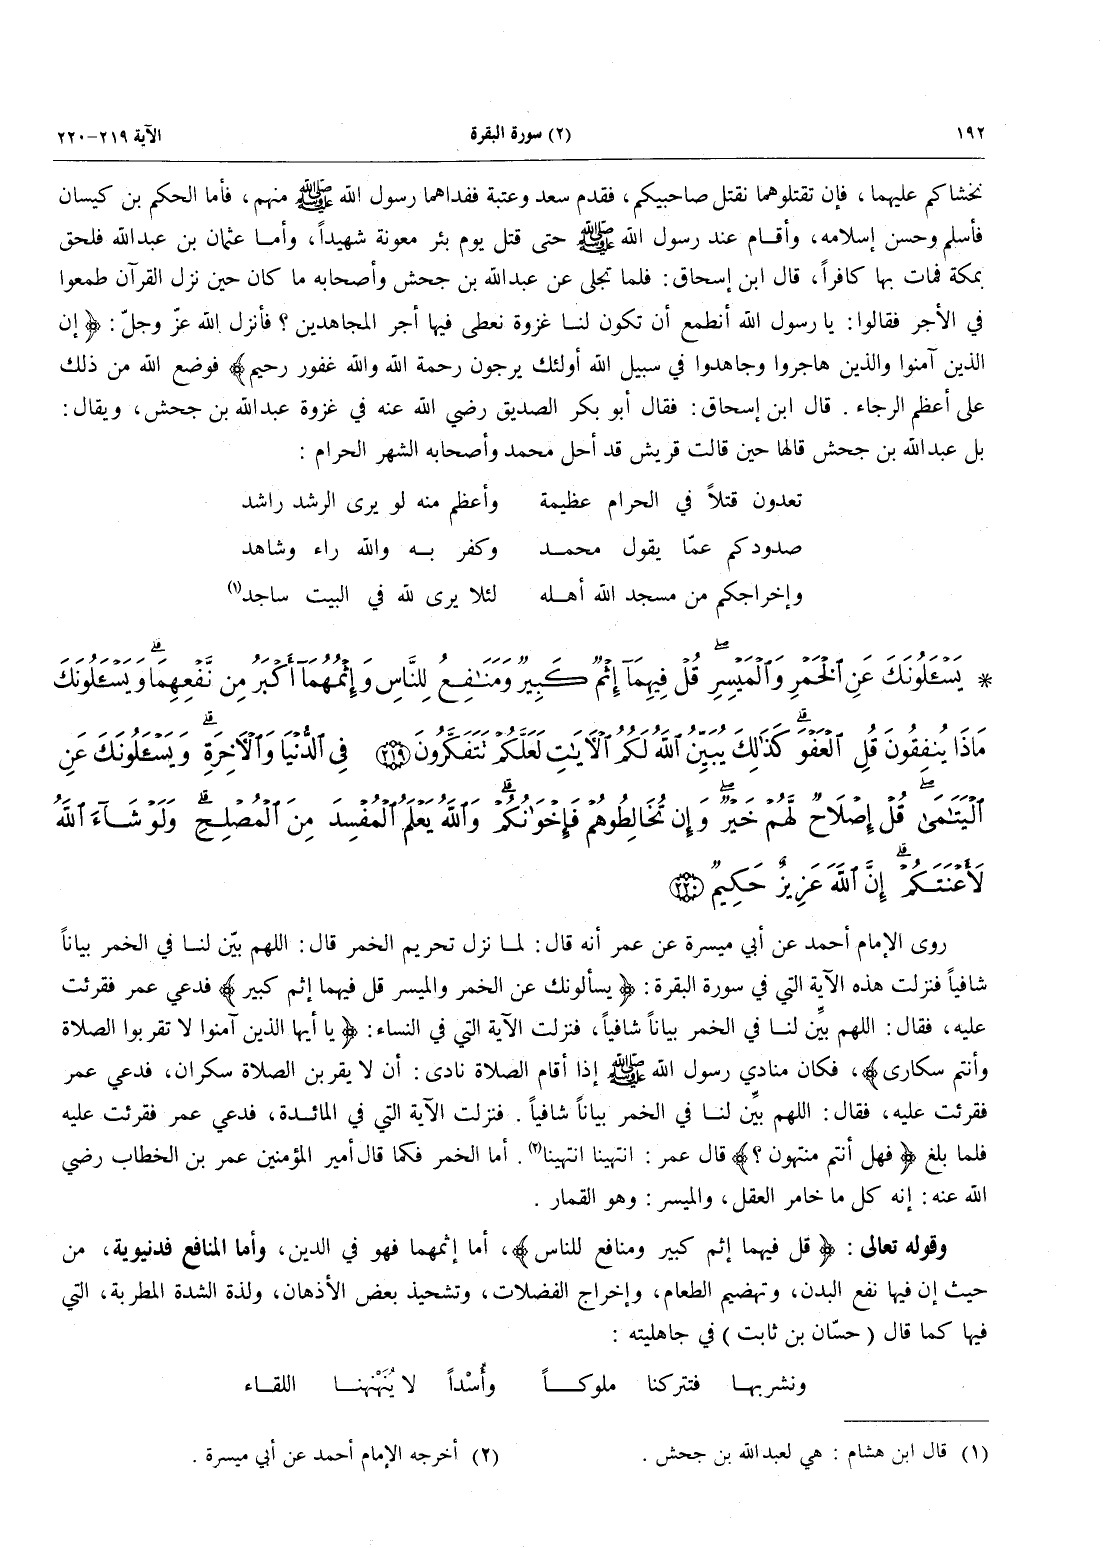 ١٩٢ (٢) سورة البقرة الآية ٢١٩-٢٢٠
نخشاكم عليهما، فإن تقتلوهما نقتل صاحبيكم، فقدم سعد وعتبة ففداهما رسول الله ﷺ منهم، فأما الحكم بن كيسان
فأسلم وحسن إسلامه، وأقـام عند رسول الله ﷺ حتى قتل يوم بئر معونة شهيداً، وأمـا عثمان بن عبدالله فلحق
بمكة فمات بها كافراً، قال ابن إسحاق: فلما تجلى عن عبدالله بن جحش وأصحابه ما كان حين نزل القرآن طمعوا
في الأجر فقالوا: يا رسول الله أنطمع أن تكون لنـا غزوة نعطى فيها أجر المجاهدين؟ فأنزل الله عزّ وجلّ: ﴿إن
الذين آمنوا والذين هاجروا وجاهدوا في سبيل الله أولئك يرجون رحمة الله والله غفور رحيم﴾ فوضع الله من ذلك
على أعظم الرجاء. قال ابن إسحاق: فقال أبو بكر الصديق رضي الله عنه في غزوة عبدالله بن جحش، ويقال:
بل عبدالله بن جحش قالها حين قالت قريش قد أحل محمد وأصحابه الشهر الحرام:
تعدون قتلاً في الحرام عظيمة وأعظم منه لو يرى الرشد راشد
صدودكم عمّا يقول محمـد وكفر بـه والله راء وشاهد
وإخراجكم من مسجد الله أهـله لئلا يرى لله في البيت ساجد(١)
* يَسْـَٔلُونَكَ عَنِ ٱلْخَمْرِ وَٱلْمَيْسِرِۖ قُلْ فِيهِمَآ إِثْمٌ كَبِيرٌ وَمَنَٰفِعُ لِلنَّاسِ وَإِثْمُهُمَآ أَكْبَرُ مِن نَّفْعِهِمَاۗ وَيَسْـَٔلُونَكَ
مَاذَا يُنفِقُونَ قُلِ ٱلْعَفْوَۗ كَذَٰلِكَ يُبَيِّنُ ٱللَّهُ لَكُمُ ٱلْآيَٰتِ لَعَلَّكُمْ تَتَفَكَّرُونَ ﴿٢١٩﴾ فِى ٱلدُّنْيَا وَٱلْآخِرَةِۗ وَيَسْـَٔلُونَكَ عَنِ
ٱلْيَتَٰمَىٰۖ قُلْ إِصْلَاحٌ لَّهُمْ خَيْرٌۖ وَإِن تُخَالِطُوهُمْ فَإِخْوَٰنُكُمْۗ وَٱللَّهُ يَعْلَمُ ٱلْمُفْسِدَ مِنَ ٱلْمُصْلِحِۗ وَلَوْ شَآءَ ٱللَّهُ
لَأَعْنَتَكُمْۗ إِنَّ ٱللَّهَ عَزِيزٌ حَكِيمٌ ﴿٢٢٠﴾
روى الإمام أحمد عن أبي ميسرة عن عمر أنه قال: لمـا نزل تحريم الخمر قال: اللهم بيّن لنـا في الخمر بياناً
شافياً فنزلت هذه الآية التي في سورة البقرة: ﴿يسألونك عن الخمر والميسر قل فيهما إثم كبير﴾ فدعي عمر فقرئت
عليه، فقال: اللهم بيِّن لنـا في الخمر بياناً شافياً، فنزلت الآية التي في النساء: ﴿يا أيها الذين آمنوا لا تقربوا الصلاة
وأنتم سكارى﴾، فكان منادي رسول الله ﷺ إذا أقام الصلاة نادى: أن لا يقربن الصلاة سكران، فدعي عمر
فقرئت عليه، فقال: اللهم بيِّن لنـا في الخمر بياناً شافياً. فنزلت الآية التي في المائـدة، فدعي عمر فقرئت عليه
فلما بلغ ﴿فهل أنتم منتهون؟﴾ قال عمر: انتهينا انتهينا(٢). أما الخمر فكما قال أمير المؤمنين عمر بن الخطاب رضي
الله عنه: إنه كل ما خامر العقل، والميسر: وهو القمار.
وقوله تعالى: ﴿قل فيهما إثم كبير ومنافع للناس﴾، أما إثمهما فهو في الدين، وأما المنافع فدنيوية، من
حيث إن فيها نفع البدن، وتهضيم الطعام، وإخراج الفضلات، وتشحيذ بعض الأذهان، ولذة الشدة المطربة، التي
فيها كما قال (حسّان بن ثابت) في جاهليته:
ونشربهـا فتتركنا ملوكـاً وأُسْداً لا يُنَهْنِهنـا اللقـاء
(١) قال ابن هشام: هي لعبدالله بن جحش. (٢) أخرجه الإمام أحمد عن أبي ميسرة.